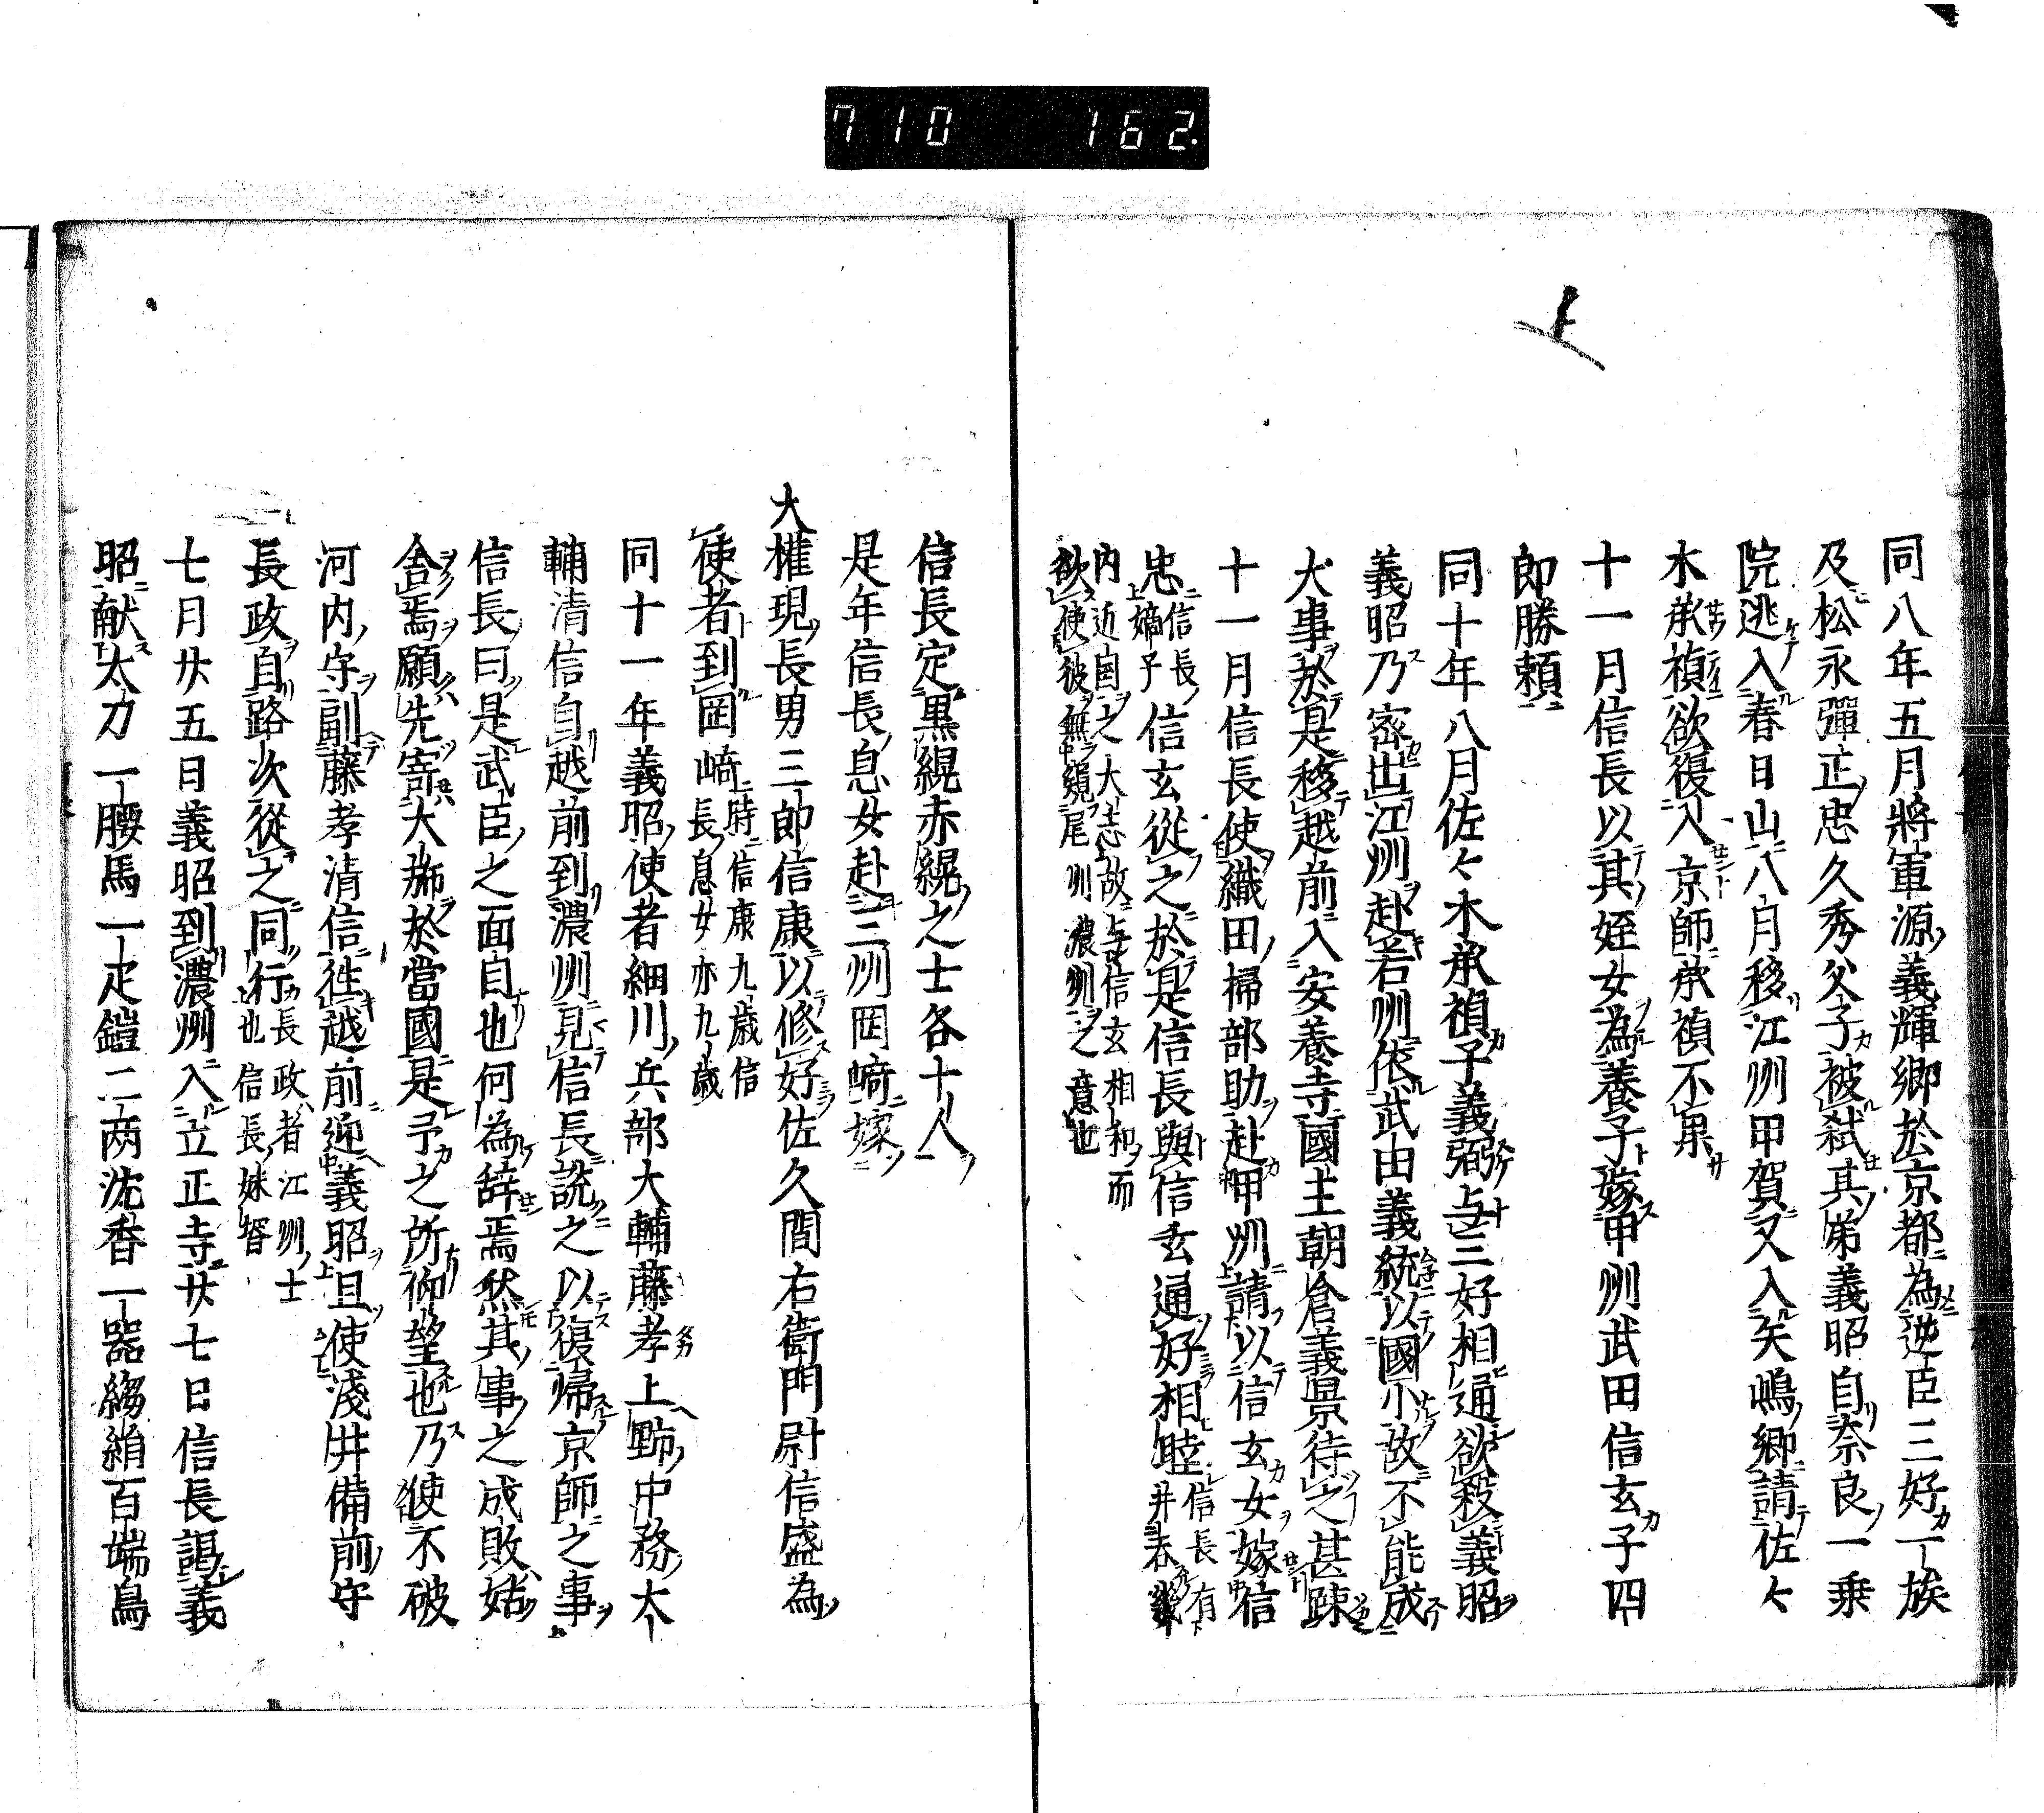 710 162.
上
同八年五月將軍源義輝卿於京都為逆臣三好一族
及松永彈正忠久秀父子被弑其弟義昭自奈良一乗
院逃入春日山八月移江州甲賀又入矢嶋郷請佐々
木承禎欲復入京師承禎不果
十一月信長以其姪女為養子嫁甲州武田信玄子四
郎勝頼
同十年八月佐々木承禎子義弼与三好相通欲殺義昭
義昭乃密出江州赴若州依武田義統以國小故不能成
大事於是移越前入安養寺國主朝倉義景待之甚踈
十一月信長使織田掃部助赴甲州請以信玄女嫁信
忠信長嫡子信玄從之於是信長與信玄通好相睦信長有井呑畿
内近国之大志故与信玄相和而
欲使彼無窺尾州濃州之意也
信長定黒縨赤縨之士各十人
是年信長息女赴三州岡﨑嫁
大權現長男三郎信康以修好佐久間右衛門尉信盛為
使者到岡﨑時信康九歳信長息女亦九歳
同十一年義昭使者細川兵部大輔藤孝上野中務大
輔清信自越前到濃州見信長說之以復歸京師之事
信長曰是武臣之面目也何為辞焉然其事之成敗姑
舎焉願先寄大旆於當國是予之所仰望也乃使不破
河内守副藤孝清信徃越前迎義昭且使淺井備前守
長政自路次從之同行長政者江州士也信長妹壻
七月廿五日義昭到濃州入立正寺廿七日信長謁義
昭献太刀一腰馬一疋鎧二両沈香一器縐絹百端鳥